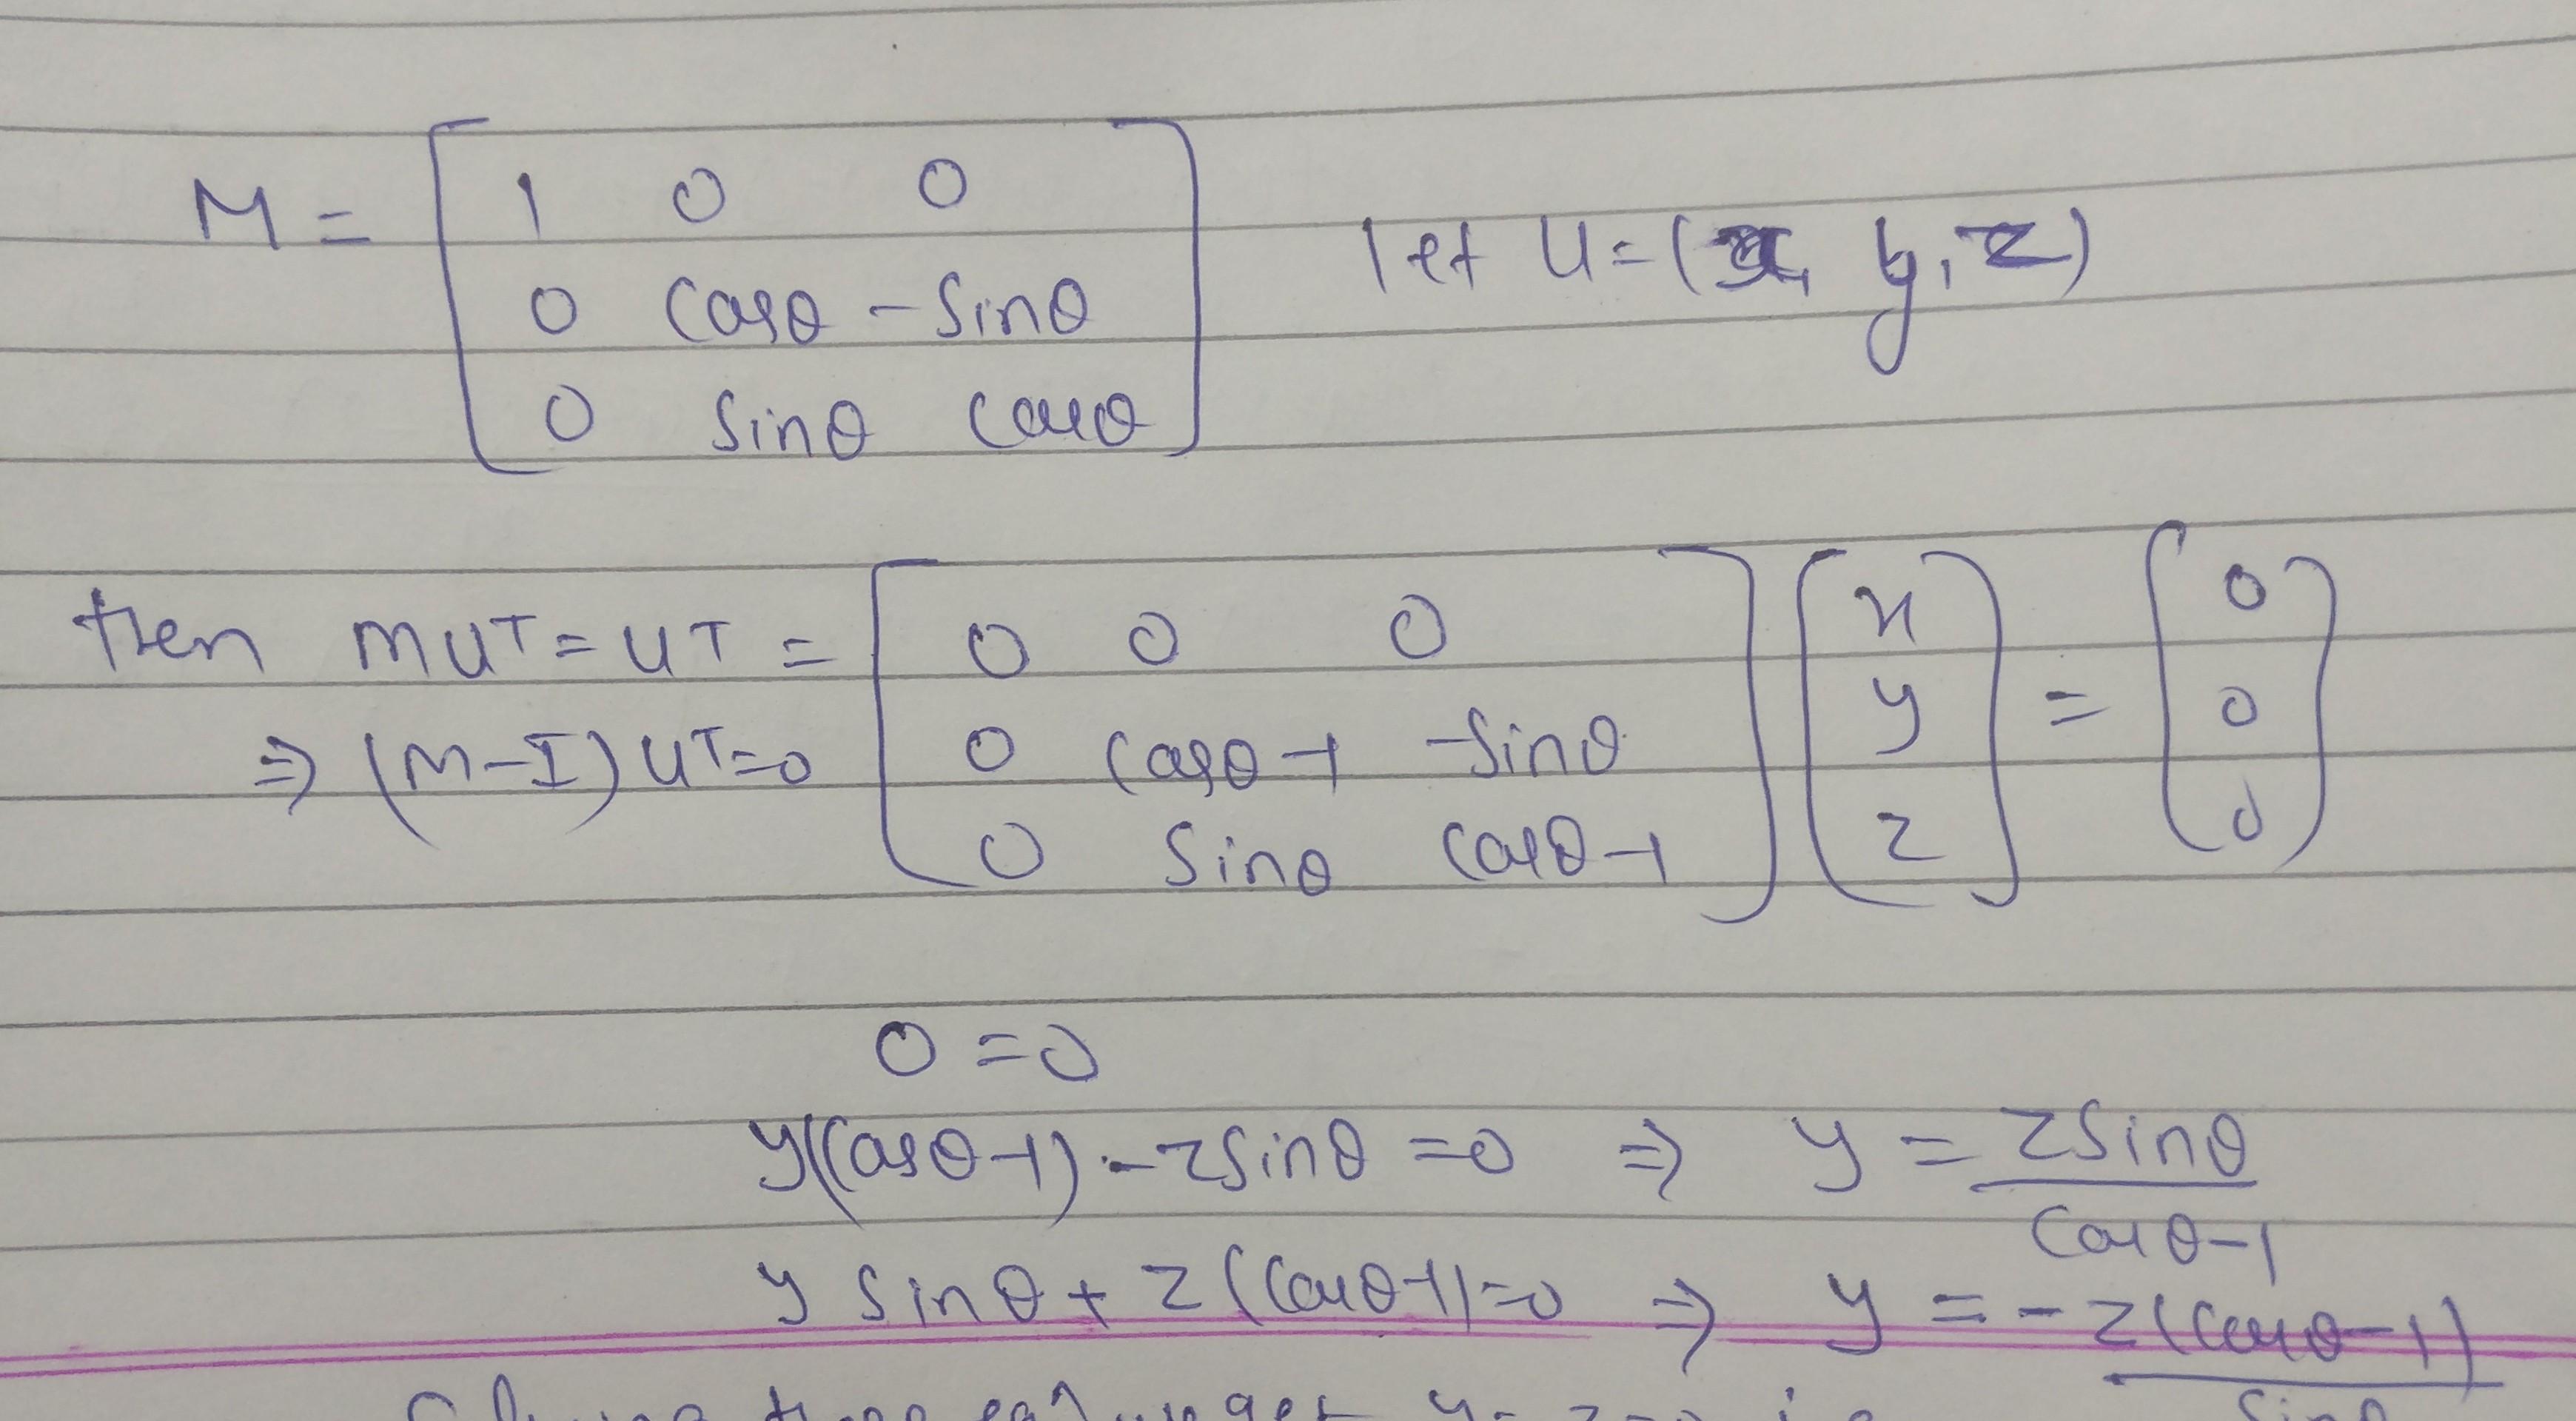 M = [ 1 0 0
0 cosθ -sinθ
0 sinθ cosθ ]
let u = (x, y, z)
then MUT = UT =
⇒ (M-I) UT=0
[ 0 0 0
0 cosθ-1 -sinθ
0 sinθ cosθ-1 ] [ x y z ] = [ 0 0 0 ]
0 = 0
y(cosθ-1) - zsinθ = 0 ⇒ y = zsinθ / cosθ-1
y sinθ + z(cosθ-1)=0 ⇒ y = -z(cosθ-1) / sinθ